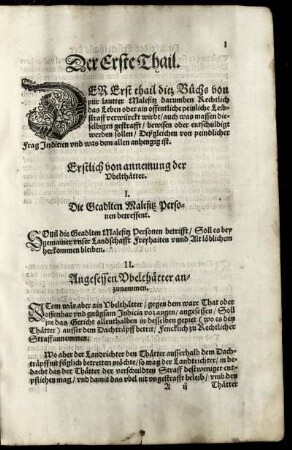 1
Der Erste Thail.
DER Erst thail ditz Bůchs von
pur lautter Malefitz darumben Rechtlich
das Leben oder ain offentliche peinliche Leib-
straff verwürckt wird / auch was massen die-
selbigen gestrafft / bewisen oder entschuldigt
werden sollen / Deßgleichen von peindlicher
Frag Inditien vnd was dem allen anhengig ist.
Erstlich von annemung der
Vbelthätter.
I.
Die Geadlten Malefitz Perso-
nen betreffent.
SOuil die Geadlten Malefitz Personen betrifft / Soll es bey
gemainer vnser Landschafft Freyhaiten vnnd Alt löblichem
herkommen bleiben.
II.
Angesessen Vbelthätter an-
zunemmen.
ITem wär aber ain Vbelthätter / gegen dem ware That oder
offenbar vnd gnůgsam Indicia vor augen / angesessen / Soll
jne das Gericht allenthalben in desselben gepiet (wo es den
Thätter) ausser dem Dachtröpff betrit / Fencklich zu Rechtlicher
Straff annemmen.
Wo aber der Landrichter den Thätter ausserhalb dem Dach-
tröpff nit füglich betretten möchte / so mag der Landtrichter / in be-
dacht das der Thätter der verschuldten Straff destweniger ent-
pfliehen mag / vnd damit das vbel nit vngestrafft beleib / vmb den
A ij Thätter